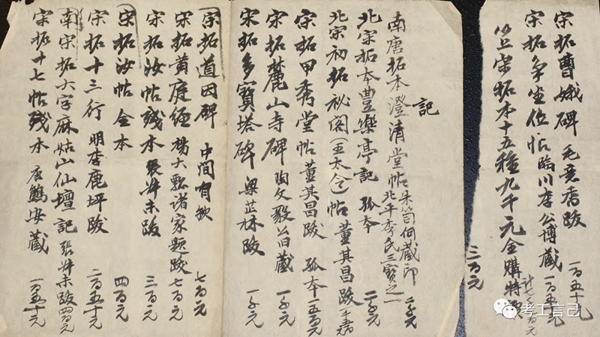 宋拓曹娥碑 毛意香跋 一百五十元
宋拓争坐位帖 臨川李公博藏
宋拓本十五種九千元金購特
三百元
記
南唐拓本澄清堂帖 朱笥何藏印 北平李氏三寶之一 二千元
北宋拓本豐樂亭記 孤本 二千元
北宋初拓秘閣(五大令)帖 董其昌跋
宋拓甲秀堂帖 董其昌跋 孤本 一千五百元
宋拓麓山寺碑 陶文毅公旧藏 一千元
宋拓多寶塔碑 梁芷林跋 一千元
宋拓道因碑 中间有缺 七百元
宋拓黄庭經 楊大瓢諸家題跋 七百元
宋拓汝帖殘本 張叔未跋 三百元
宋拓汝帖全本 四百元
宋拓十三行 明李鹿坪跋 二百五十元
南宋拓六字麻姑山仙壇記 張叔未跋 四百元
宋拓十七帖殘本 唐鶴安藏 一百五十元
考工言己